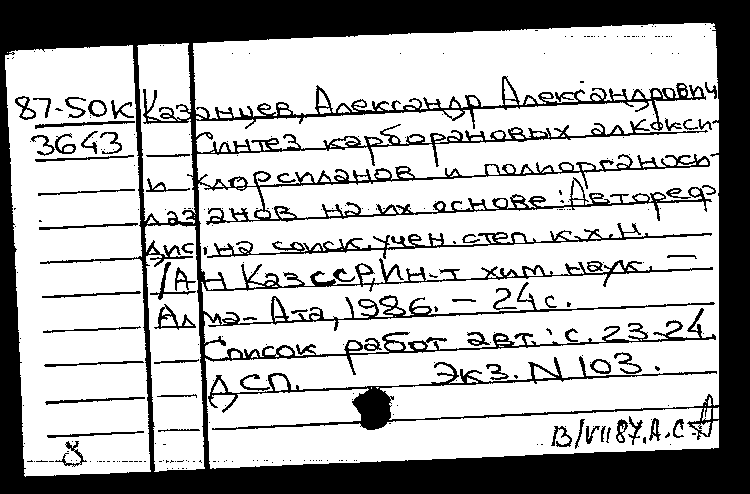 87-50К Казанцев, Александр Александрович
3643 Синтез карборановых алкокси-
и хлорсиланов и полиорганоси-
лазанов на их основе: Автореф.
дис. на соиск. учен. степ. к.х.н.
/АН КазССР, Ин-т хим. наук. —
Алма-Ата, 1986. — 24 с.
Список работ авт.: с. 23-24.
ДСП. Экз. N 103.
8 13/VII 87. А. С